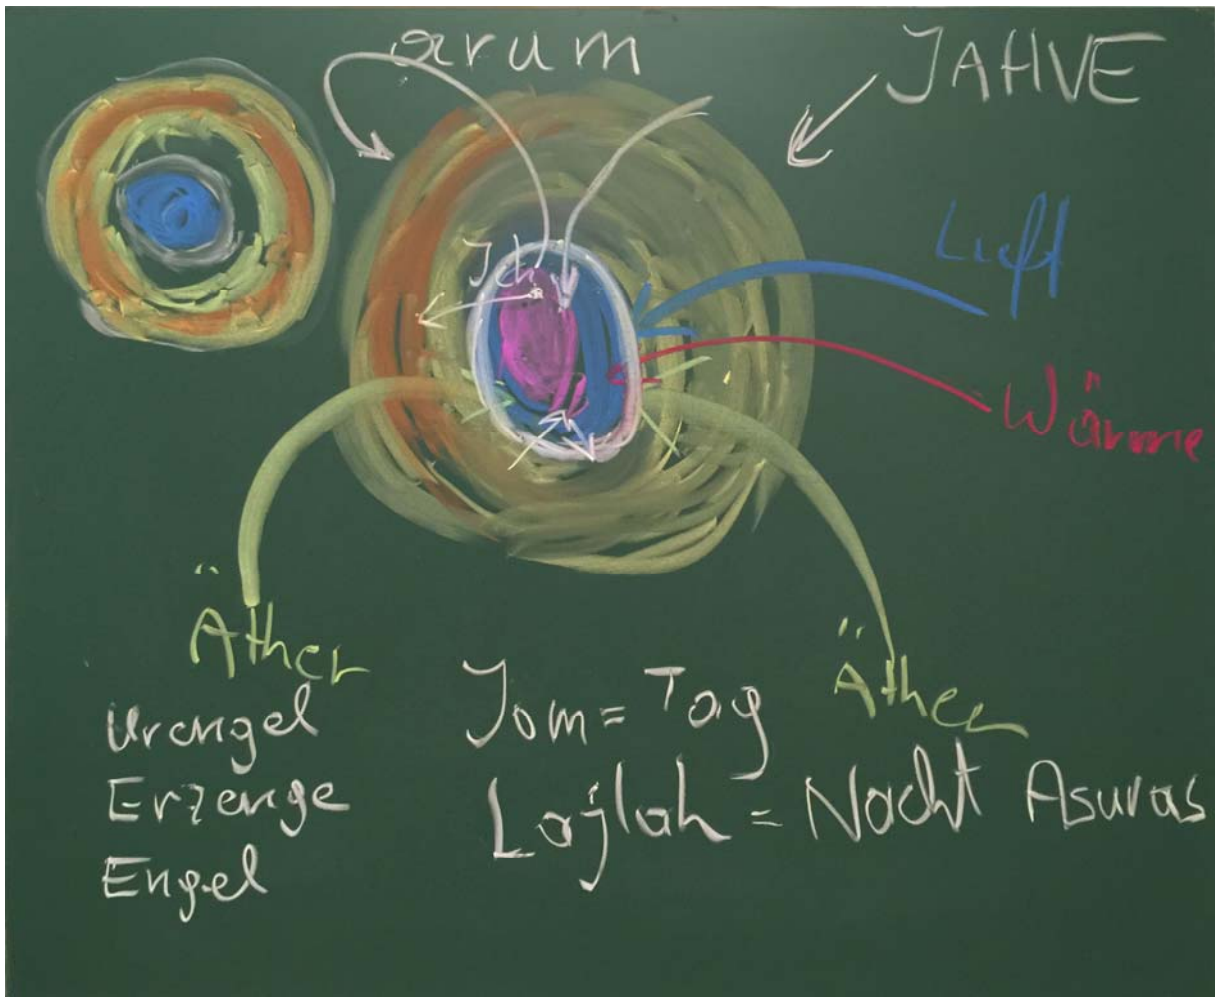 arum
JAHVE
Luft
Ich
Wärme
Äther
Äther
Urengel
Erzenge
Engel
Jom = Tag
Lajlah = Nacht Asuras